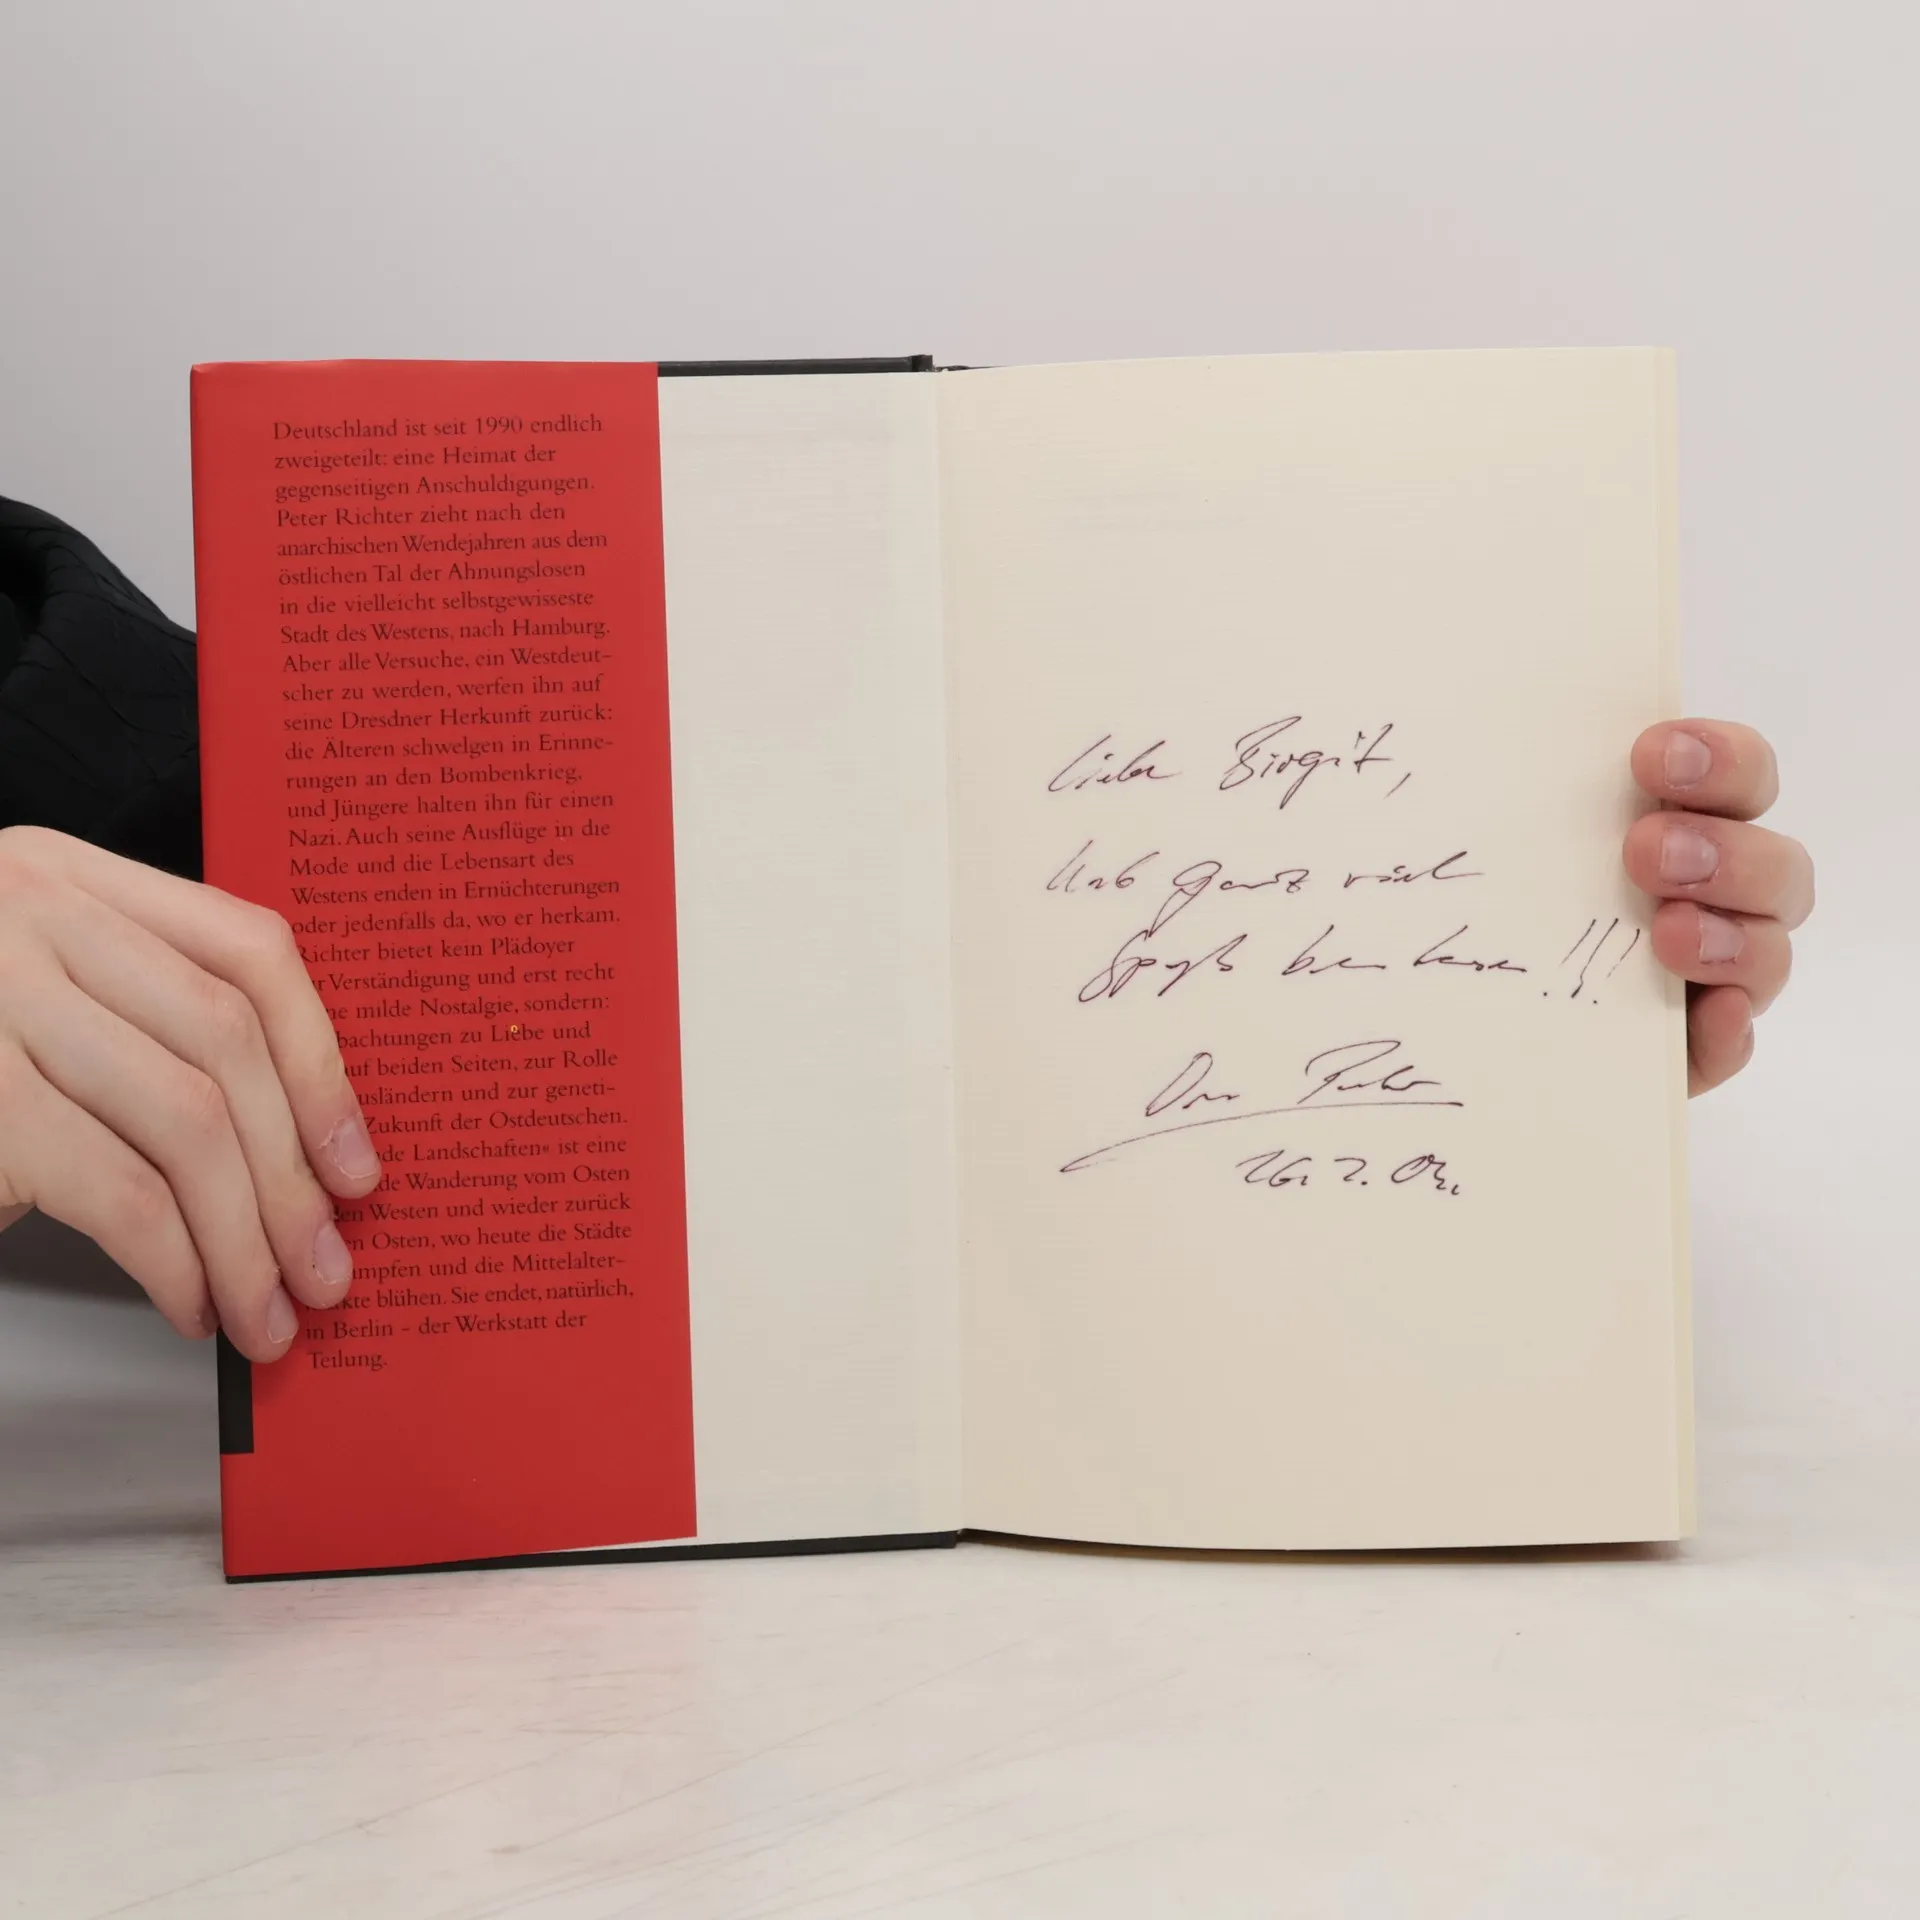 Deutschland ist seit 1990 endlich
zweigeteilt: eine Heimat der
gegenseitigen Anschuldigungen.
Peter Richter zieht nach den
anarchischen Wendejahren aus dem
östlichen Tal der Ahnungslosen
in die vielleicht selbstgewisseste
Stadt des Westens, nach Hamburg.
Aber alle Versuche, ein Westdeut-
scher zu werden, werfen ihn auf
seine Dresdner Herkunft zurück:
die Älteren schwelgen in Erinne-
rungen an den Bombenkrieg,
und Jüngere halten ihn für einen
Nazi. Auch seine Ausflüge in die
Mode und die Lebensart des
Westens enden in Ernüchterungen
oder jedenfalls da, wo er herkam.
Richter bietet kein Plädoyer
r Verständigung und erst recht
ne milde Nostalgie, sondern:
bachtungen zu Liebe und
uf beiden Seiten, zur Rolle
usländern und zur geneti-
Zukunft der Ostdeutschen.
de Landschaften« ist eine
de Wanderung vom Osten
en Westen und wieder zurück
en Osten, wo heute die Städte
mpfen und die Mittelalter-
kte blühen. Sie endet, natürlich,
in Berlin – der Werkstatt der
Teilung.
Liebe Birgit,
Hab ganz viel
Spaß beim Lesen!!!
Dein Peter